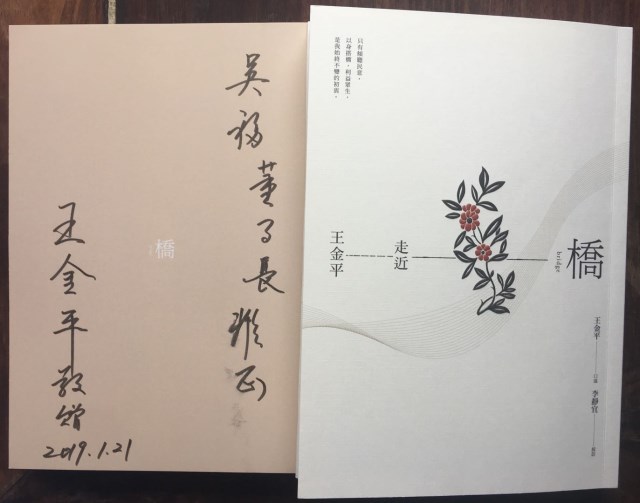 吳福董事長雅正
橋
王金平敬贈
2019.1.21
以身搭橋，利益眾生，
是我始終不變的初衷。
橋
bridge
走近
王金平
王金平
口述
李靜宜